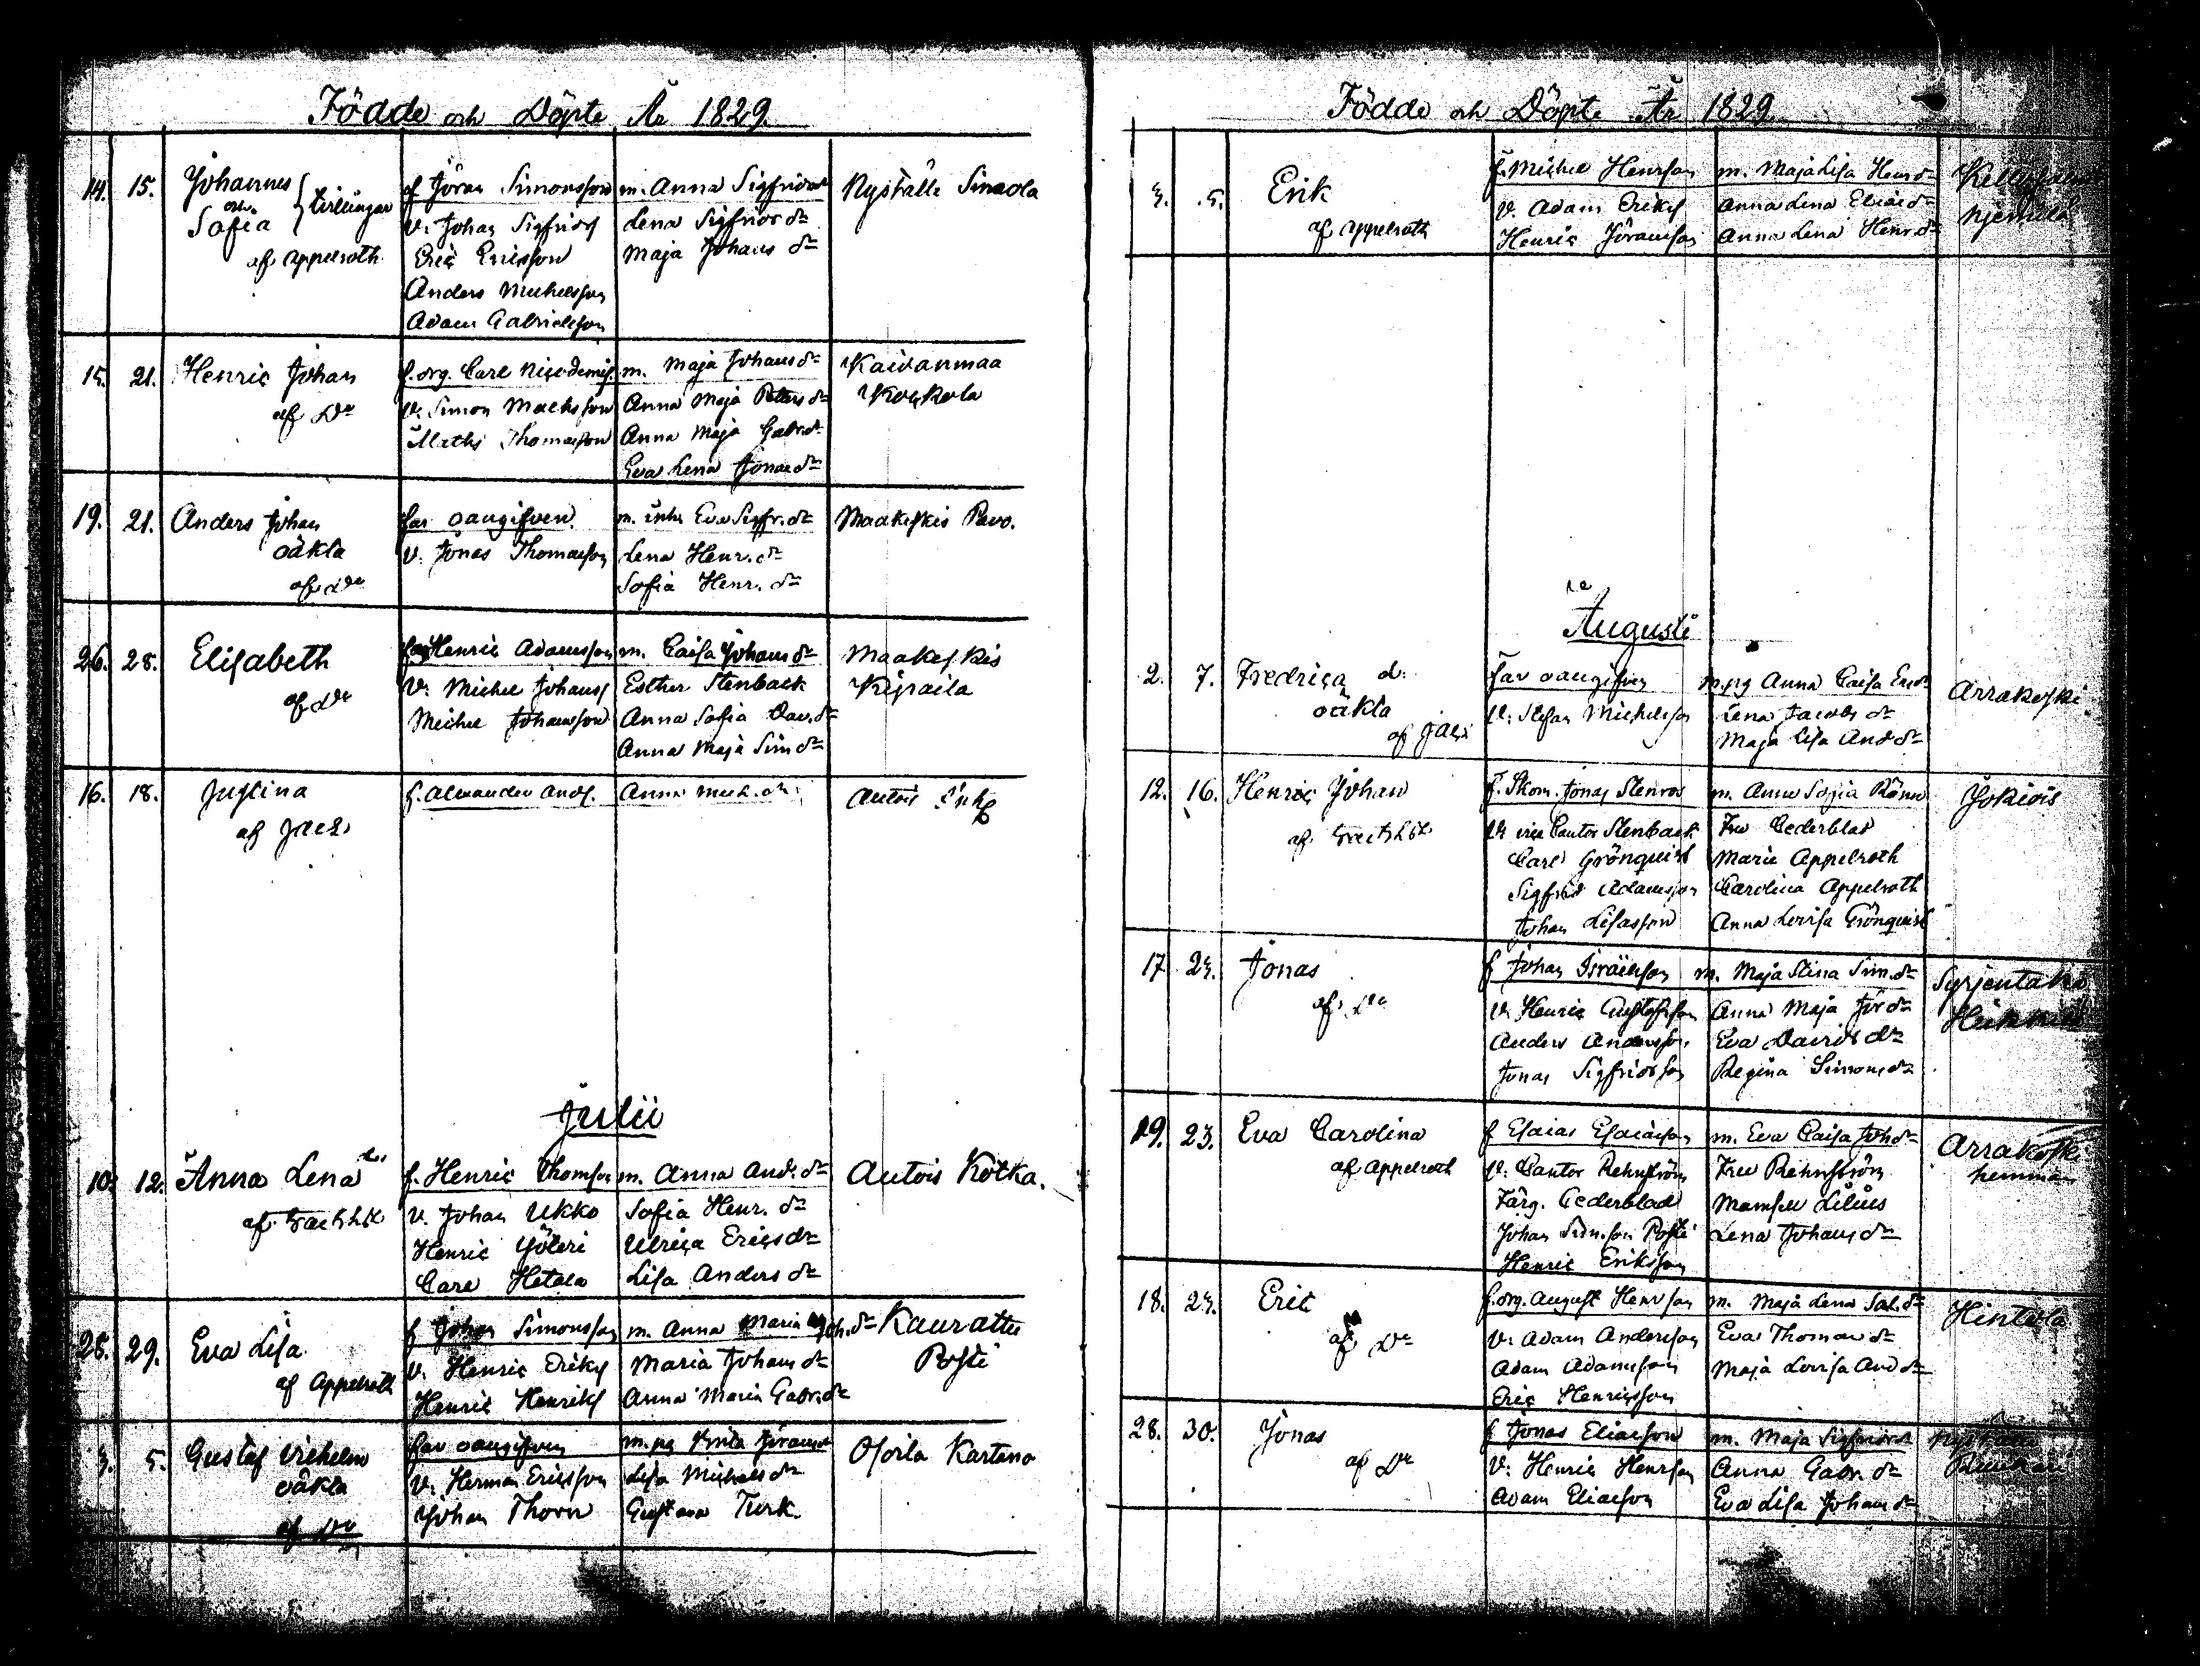 Födde och Döpte År 1829.
14. 15. Johannes
och
Sofia
tvillingar
af Appelroth
f Jöran Simonsson
v. Johan Sigfridss
Eric Ericsson
Anders Michelsson
Adam Gabrielsson
m. Anna Sigfridsdr
Lena Sigfridsdr
Maja Johansdr
Nyställe Simola
15. 21. Henric Johan
af Do
f. org. Carl Nicodemis.
v. Simon Mattsson
Maths Thomasson
m. Maja Johansdr
Anna Maja Petersdr
Anna Maja Gabr.dr
Eva Lena Jonasdr
Kaidanmaa
Koukola
19. 21. Anders Johan
oäkta
af Do
far oangifven
v. Jonas Thomasson
m. inh. Eva Sigfr.dr
Lena Henr.dr
Sofia Henr.dr
Maakeskis Pavo.
26. 28. Elisabeth
af Do
Henric Adamsson
v. Michel Johanss
Michel Johansson
m. Caisa Johansdr
Esther Stenback
Anna Sofia Dav.dr
Anna Maja Simdr
Maakeskis
Kijraila
16. 18. Justina
af
f. Alexander Ands.
Anna Mich.dr
Autois
Julii
10. 12. Anna Lena
af
f. Henric Thomsson
v. Johan Ukko
Henric Yöleri
Carl Hetala
m. Anna And.dr
Sofia Henr.dr
Ulrica Ericsdr
Lisa Andersdr
Autois Kotka.
28. 29. Eva Lisa
af Appelroth
f Johan Simonsson
v. Henric Eriks
Henric Henriks
m. Anna Maria Joh.dr
Maria Johansdr
Anna Maria Gabr.dr
Kaurattu
Posti
3. 5. Gustaf Vilhelm
oäkta
af Do
far oangifven
v. Herman Ericsson
Johan Thorn
m. pig
Lisa Michelsdr
Gustava Turk.
Osoila Kartano
Födde och Döpte År 1829
3. 5. Erik
af Appelroth
f. Michel Henrsson
v. Adam Eriks
Henric Göransson
m. Maja Lisa Henrsdr
Anna Lena Eliaedr
Anna Lena Henr.dr
Augusti
2. 7. Fredrica d.
oäkta
af
far oangifven
v. Stefan Michelsson
m. pig Anna Caisa Er.dr
Lena Jacobsdr
Maja Lisa Anddr
Arrakoski
12. 16. Henric Johan
af
f. Skom. Jonas Stenros
v. vice Cantor Stenback
Carl Grönquist
Sigfrid Adamsson
Johan Lisasson
m. Anna Sofia
Fru Cederblad
Marie Appelroth
Carolina Appelroth
Anna Lovisa Grönquist
Jokiois
17 23. Jonas
af Do
f Johan Israelsson
v. Henric Gustafsson
Anders Andersson
Jonas Sigfridsson
m. Maja Stina Sim.dr
Anna Maja Jördr
Eva Davidsdr
Regina Simonsdr
Syrjentaka
19. 23. Eva Carolina
af Appelroth
f Esaias Esaiasson
v. Cantor Rehnström
Färg. Cederblad
Johan Sim.son Posti
Henric Eriksson
m. Eva Caisa Johdr
Fru Rehnström
Mamsell Lilius
Lena Johansdr
Arrakoski
hemman
18. 23. Eric
af Do
f. org. August Henrsson
v. Adam Andersson
Adam Adamsson
Eric Henricsson
m. Maja Lena Sal.dr
Eva Thomasdr
Maja Lovisa Anddr
Hintola
28. 30. Jonas
af Do
f Jonas Eliaeson
v. Henric Henrsson
Adam Eliaeson
m. Maja Sigfridsdr
Anna Gabr.dr
Eva Lisa Johansdr